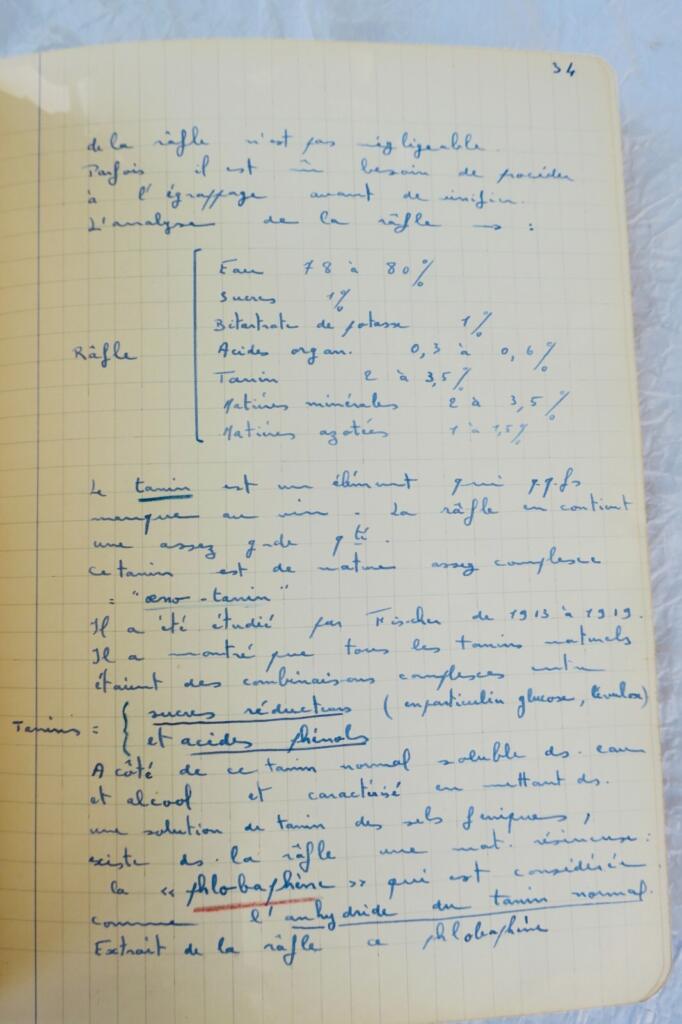 34
de la râfle n'est pas négligeable.
Parfois il est besoin de procéder
à l'égrappage avant de vinifier.
L'analyse de la râfle → :
Eau 78 à 80%
Sucres 1%
Bitartrate de potasse 1%
Râfle
Acides organ. 0,3 à 0,6%
Tanin 2 à 3,5%
Matières minérales 2 à 3,5%
Matières azotées 1 à 1,5%
Le tanin est un élément qui q.q.fs
manque au vin. La râfle en contient
une assez g-de qté.
Ce tanin est de nature assez complexe
= "œno-tanin"
Il a été étudié par Fischer de 1913 à 1919.
Il a montré que tous les tanins naturels
étaient des combinaisons complexes entre
Tanins = { sucres réducteurs (en particulier glucose, lévulose)
et acides phénols
A côté de ce tanin normal soluble ds. eau
et alcool et caractérisé en mettant ds.
une solution de tanin des sels ferriques,
existe ds. la râfle une mat. résineuse :
la « phlobaphène » qui est considérée
comme l'anhydride du tanin normal.
Extrait de la râfle ce phlobaphène